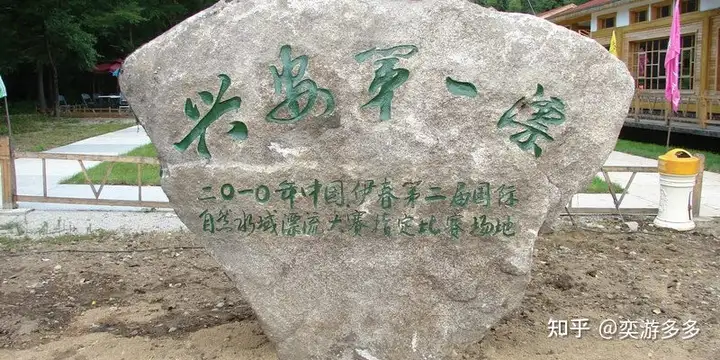 兴安第一寨
二〇一〇年中国伊春第二届国际
自然水域漂流大赛指定比赛场地
知乎 @奕游多多